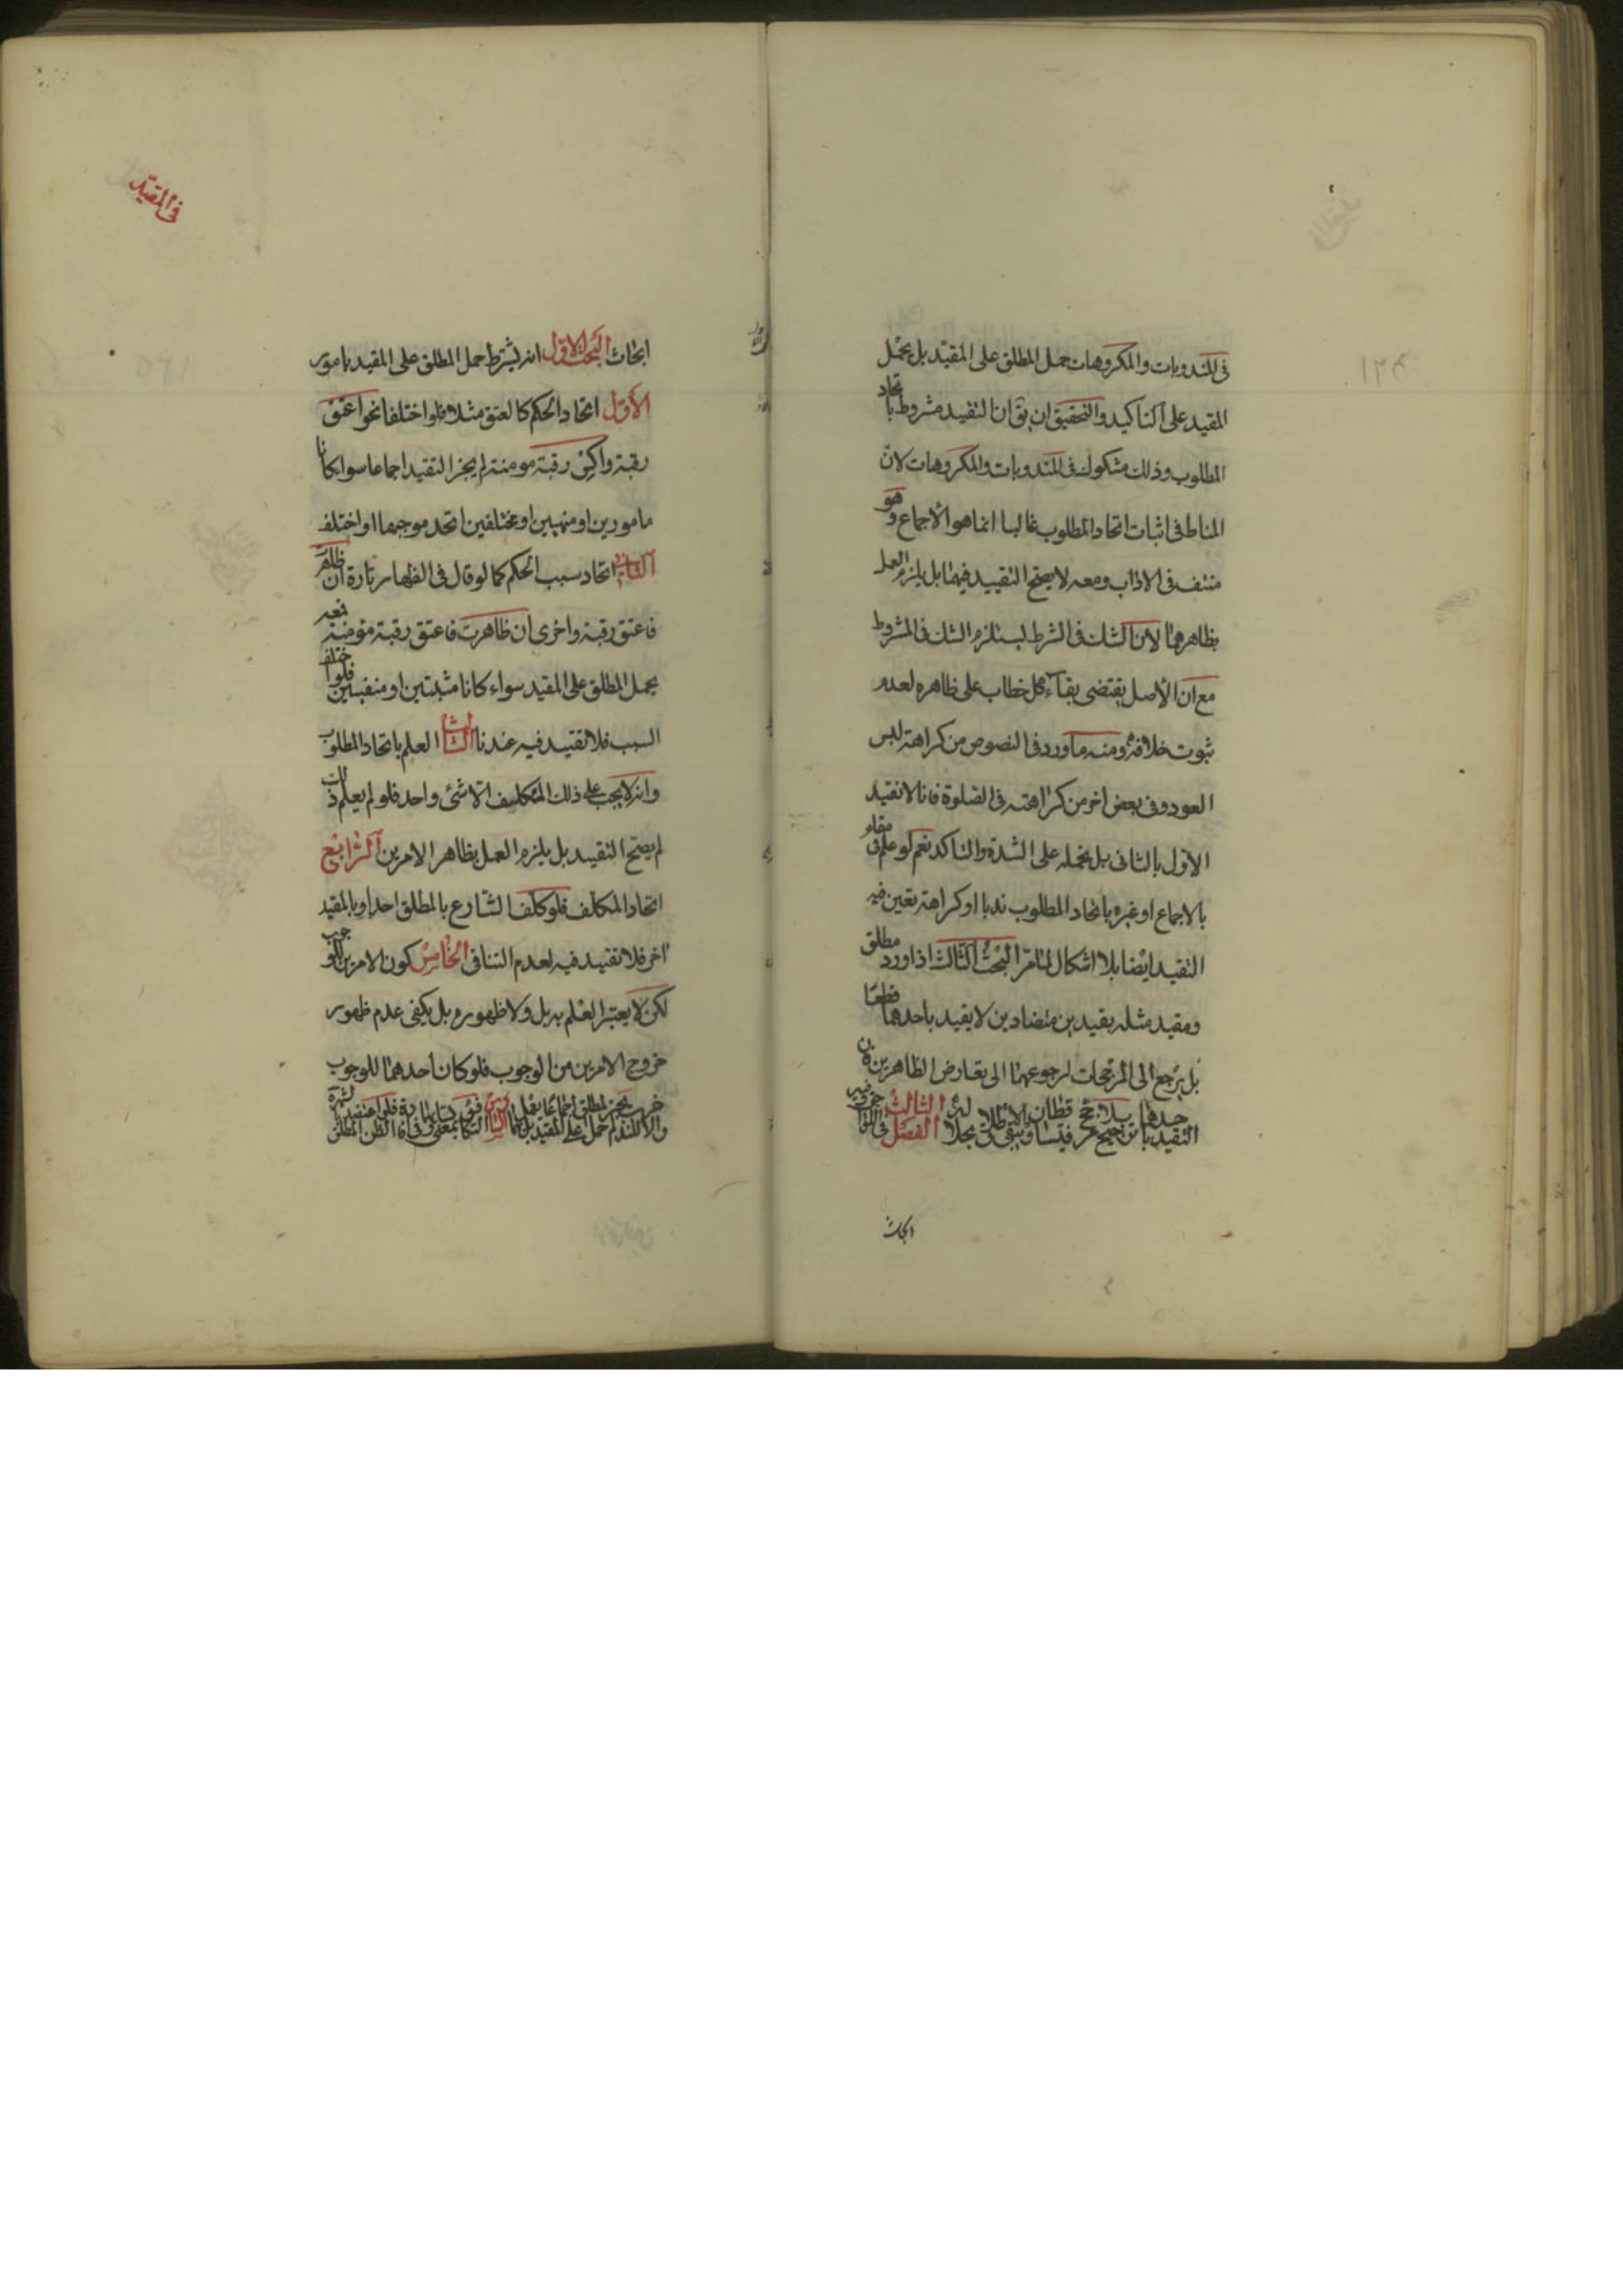 في المندوبات والمكروهات حمل المطلق على المقيد بل يحمل
المقيد على التاكيد والتحقيق ان يق ان التقييد مشروط باتحاد
المطلوب وذلك مشكوك في المندوبات والمكروهات لان
المناط في اثبات اتحاد المطلوب غالبا انما هو الاجماع وهو
منتف في الاداب ومعه لا يصح التقييد فيهما بل يلزم العمل
بظاهرهما لان الشك في الشرط يستلزم الشك في المشروط
مع ان الاصل يقتضى بقاء كل خطاب على ظاهره لعدم
ثبوت خلافه ومنه ما ورد في النصوص من كراهة لبس
السود وفي بعض اخر من كراهته في الصلوة فانا لا نقيد
الاول بالثاني بل نحمله على الشدة والتاكد نعم لو علم في مقام
بالاجماع او غيره باتحاد المطلوب ندبا او كراهة تعين فيه
التقييد ايضا بلا اشكال لما مر البحث الثالث اذا ورد مطلق
ومقيد مثله بقيدين متضادين لا يقيد باحدهما قطعا
بل يرجع الى المرجحات لرجوعهما الى تعارض الظاهرين فان
التقييد باحدهما ترجيح بلا مرجح
الفصل الثالث في
ابحاث
في المقيد
ابحاث البحث الاول انه يشترط حمل المطلق على المقيد بامور
الاول اتحاد الحكم كالعتق مثلا فلو اختلفا نحو اعتق
رقبة واكس رقبة مومنة لم يجز التقييد اجماعا سوا كانا
مامورين او منهيين او مختلفين اتحد موجبهما او اختلف
الثاني اتحاد سبب الحكم كما لو قال في الظهار تارة ان ظاهرت
فاعتق رقبة واخرى ان ظاهرت فاعتق رقبة مؤمنة فعه
يحمل المطلق على المقيد سواء كانا مثبتين او منفيين فلو اختلف
السبب فلا تقييد فيه عندنا الثالث العلم باتحاد المطلوب
وانه لا يجب على ذلك المكلف الا شئ واحد فلو لم يعلم ذلك
لم يصح التقييد بل يلزم العمل بظاهر الامرين الرابع
اتحاد المكلف فلو كلف الشارع بالمطلق احدا وبالمقيد
اخر فلا تقييد فيه لعدم التنافى الخامس كون الامرين للوجوب
لكن لا يعتبر العلم به بل ولا ظهوره بل يكفى عدم ظهور
خروج الامرين من الوجوب فلو كان احدهما للوجوب
والاخر للندب لم يجز حمل المطلق على المقيد اجماعا بل يعمل بهما